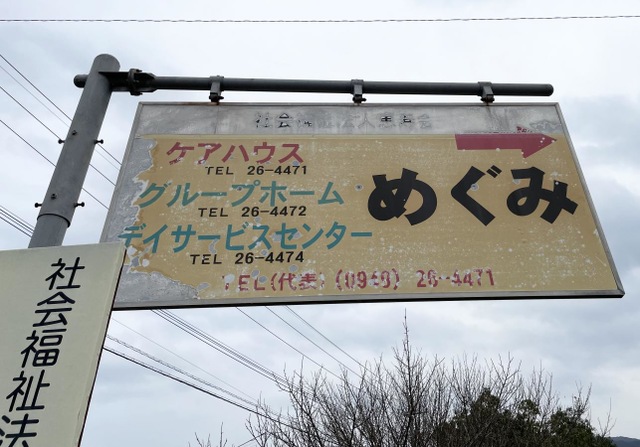 ケアハウス
TEL 26-4471
グループホーム
TEL 26-4472
デイサービスセンター
TEL 26-4474
めぐみ
TEL(代表) 26-4471
社会福祉法